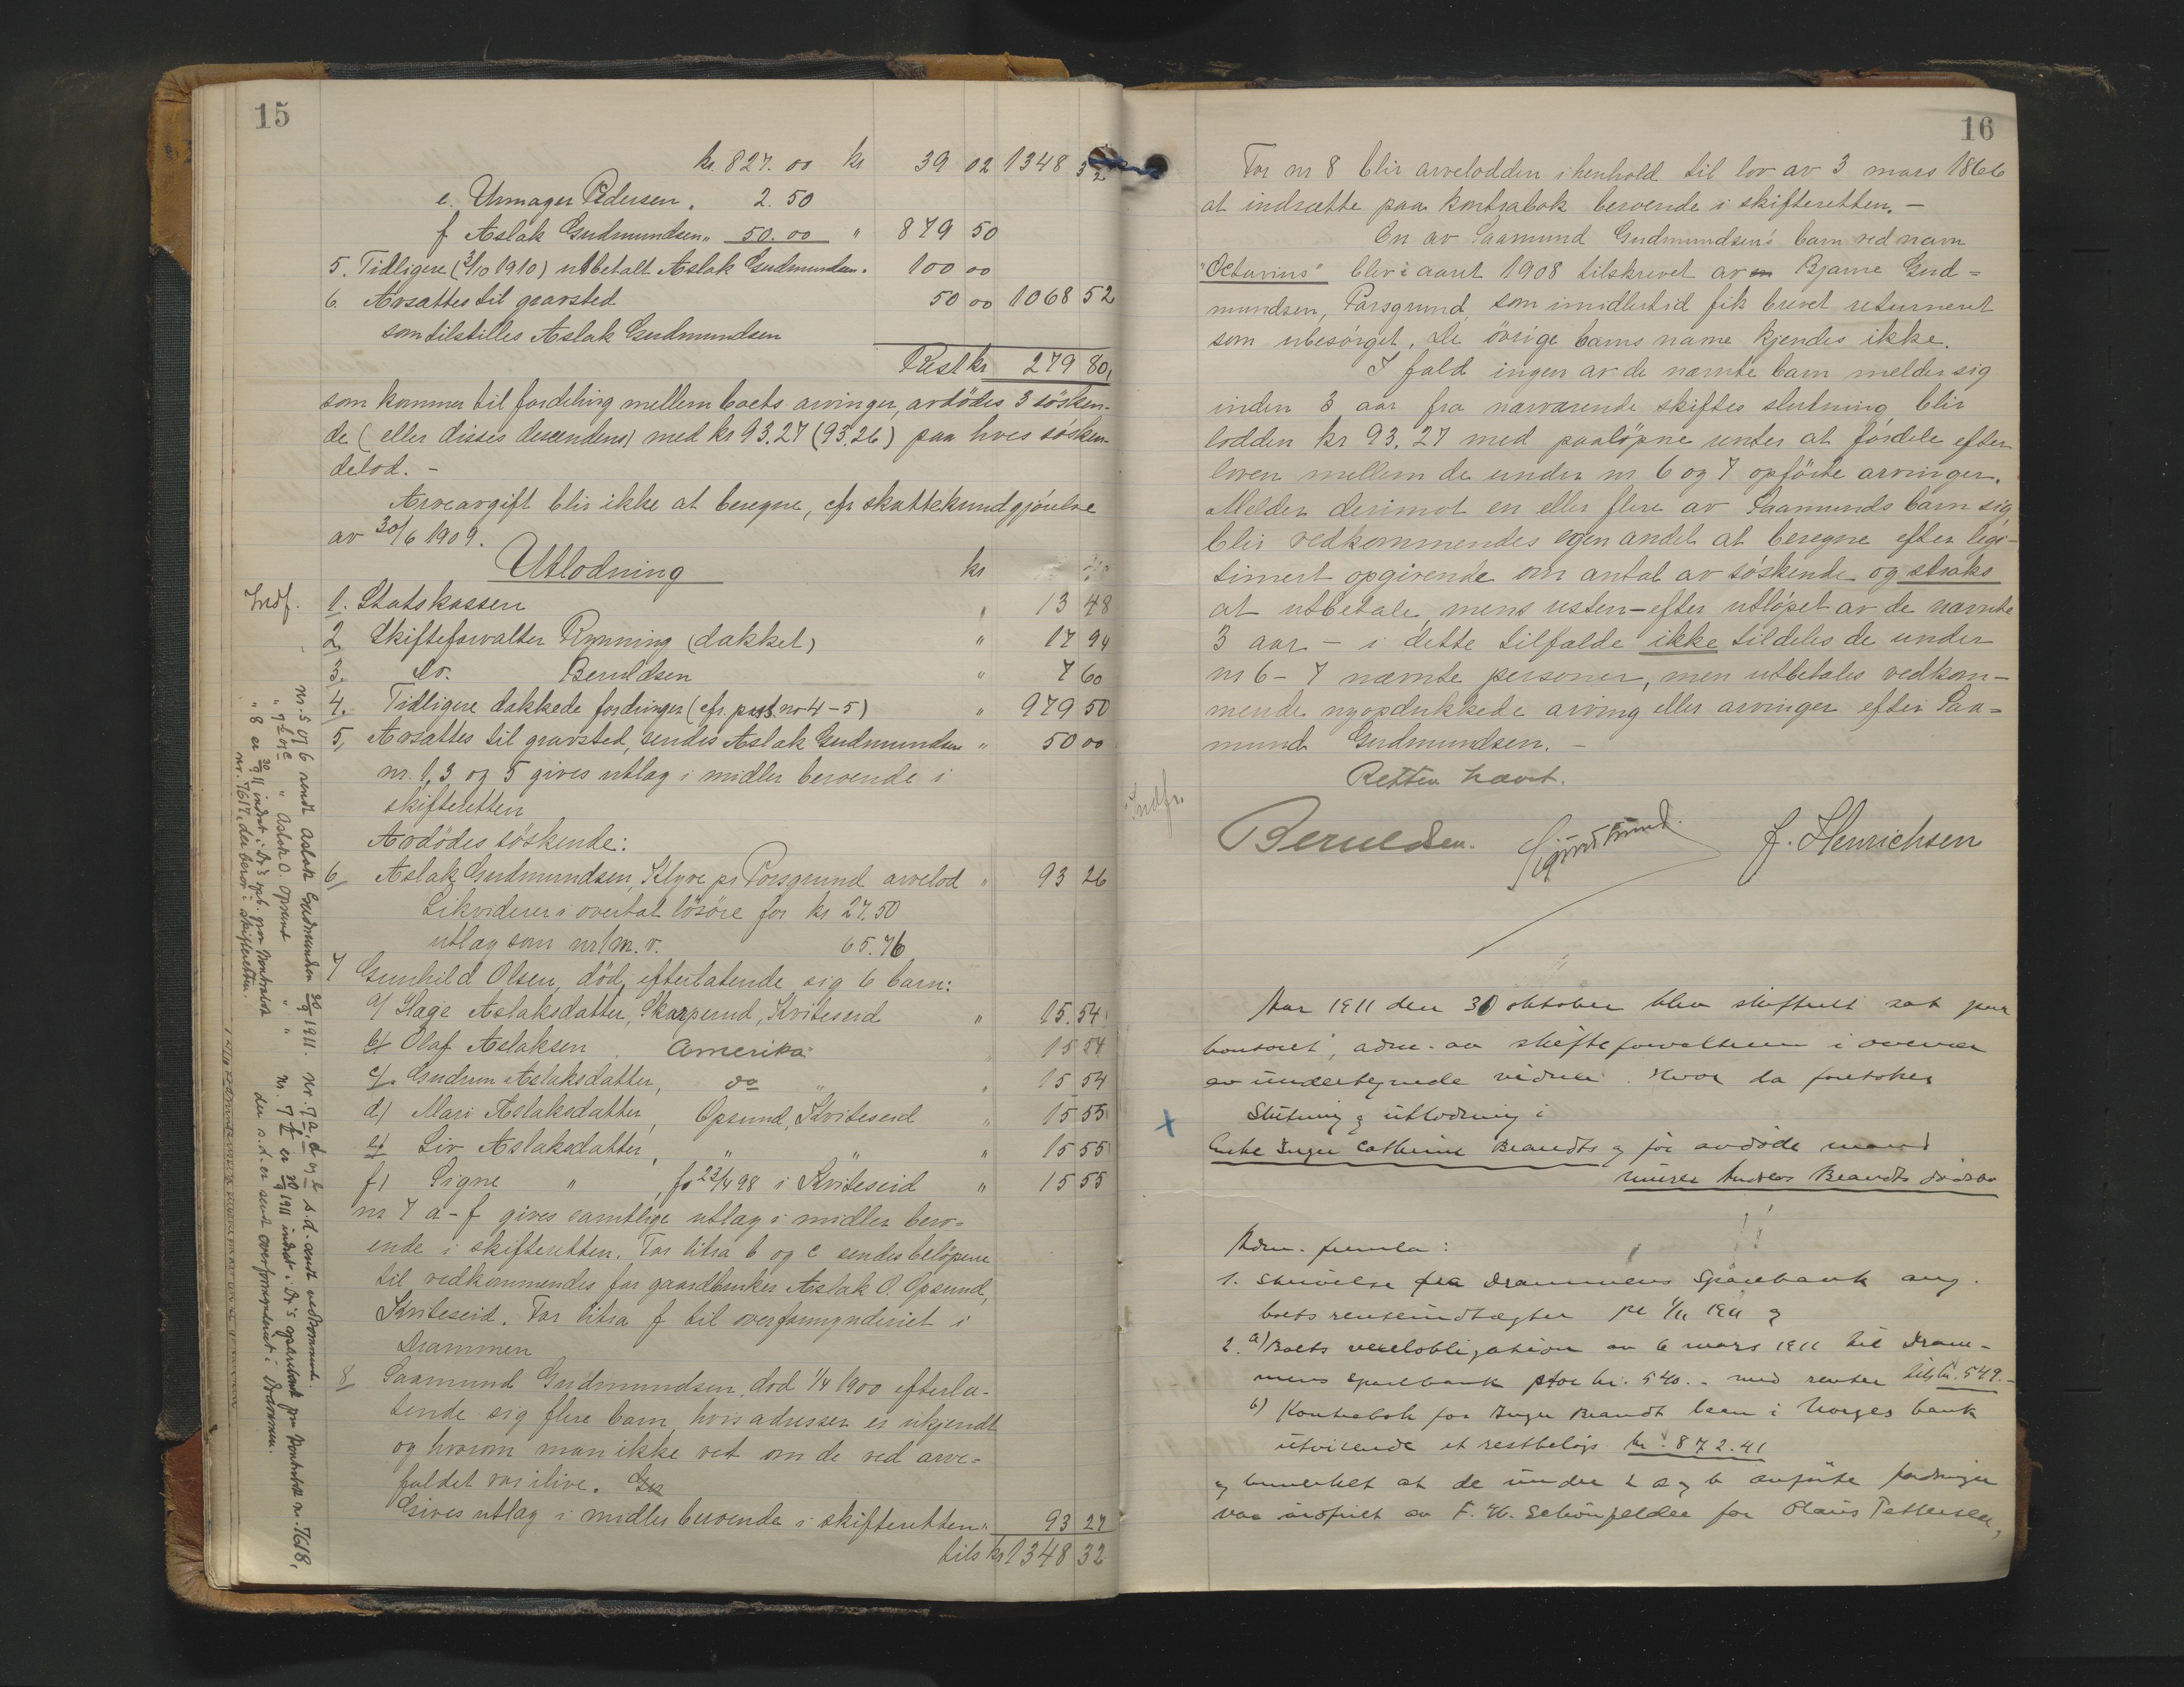 15
kr. 827. 00 kr 39 02 1348 32
e. Urmager Pedersen " 2. 50
f Aslak Gudmundsen " 50. 00 " 879 50
5. Tidligere (3/10 1910) utbetalt Aslak Gudmundsen " 100 00
6 Avsættes til gravsted 50 00 1068 52
som tilstilles Aslak Gudmundsen
Rest kr 279 80,
som kommer til fordeling mellem boets arvinger, avdødes 3 søsken-
de (eller disses descendens) med kr 93.27 (93.26) paa hver søsken-
delod. -
Arveavgift blir ikke at beregne, cfr skattekundgjørelse
av 30/6 1909.
Utlodning kr
Indf. 1. Statskassen " 13 48
2 Skifteforvalter Rynning (dækket) " 17 94
3. do. Beruldsen " 7 60
4. Tidligere dækkede fordringer (cfr. post no 4-5) " 979 50
5, Avsættes til gravsted, sendes Aslak Gudmundsen " 50 00
nr. 1, 3 og 5 gives utlæg i midler beroende i
skifteretten
Avdødes søskende:
6/ Aslak Gudmundsen, Klyve pr Porsgrund arvelod " 93 26
Likviderer i overtat løsøre for kr 27.50
utlæg som nr 1 m. v. 65.76
7 Gunhild Olsen, død, efterlatende sig 6 barn:
a/ Hæge Aslaksdatter, Skarperud, Kviteseid " 15. 54
b/ Olaf Aslaksen, Amerika " 15 54
c/. Gudrun Aslaksdatter, do " " 15 54
d/ Mari Aslaksdatter, Opsund, Kviteseid " 15 55
e/ Liv Aslaksdatter, " " " 15 55
f/ Signe " , fø 23/4 98 i Kviteseid " 15 55
nr 7 a-f gives samtlige utlæg i midler bero-
ende i skifteretten. For litra b og c sendes beløpene
til vedkommendes far gaardbruker Aslak O. Opsund,
Kviteseid. For litra f til overformynderiet i
Drammen
8/ Saamund Gudmundsen, død 1/4 1900 efterla-
tende sig flere barn, hvis adresser er ukjendt
og hvorom man ikke vet om de ved arve-
faldet var ilive. Gis
Gives utlæg i midler beroende i skifteretten " 93 27
tils kr 1348 32
nr. 5 og 6 sendt Aslak Gudmundsen 30/9 1911. nr. 7 a, d og e s.d. sendt vedkommende.
" 7 b og c " Aslak O. Opsund " " nr. 7 f er 30/9 1911 indsat i Dr's sparebank paa kontrabok nr. 7618,
" 8 er 30/9 11 indsat i Dr's spb. paa kontrabok der s.d. er sendt overformynderiet i Drammen.
nr. 7617, der beror i skifteretten.
16
For nr 8 blir arvelodden i henhold til lov av 3 mars 1866
at indsætte paa kontrabok beroende i skifteretten. -
En av Saamund Gudmundsen's barn ved navn
"Octavius" blev i aaret 1908 tilskrevet av en Bjarne Gud=
mundsen, Porsgrund, som imidlertid fik brevet returneret
som ubesørget. De øvrige barns navne kjendes ikke.
I fald ingen av de nævnte barn melder sig
inden 3 aar fra nærværende skiftes slutning, blir
lodden kr 93. 27 med paaløpne renter at fordele efter
loven mellem de under nr 6 og 7 opførte arvinger.
Melder derimot en eller flere av Saamunds barn sig,
blir vedkommendes egen andel at beregne efter legi-
timert opgivende om antal av søskende og straks
at utbetale, mens resten - efter utløpet av de nævnte
3 aar - i dette tilfælde ikke tildeles de under
nr 6 - 7 nævnte personer, men utbetales vedkom-
mende nyopdukkede arving eller arvinger efter Saa=
mund Gudmundsen. -
Retten hævet.
Indfr.
Beruldsen. J. Henrichsen
Aar 1911 den 30 oktober blev skifteret sat paa
kontoret, adm. av skifteforvalteren i overvær
av undertegnede vidner. Hvor da foretokes
Slutning og utlodning i
Enke Inger Cathrine Brandts og før avdøde mand
murer Andreas Brandts dødsbo
Adm. fremla:
1. skrivelse fra Drammens Sparebank ang.
boets renteindtægter pr 1/11 1911 og
2. a) Boets vexelobligation av 6 mars 1911 til Dram-
mens sparebank stor kr. 540. - med renter tils kr. 549.-
b) Kontrabok for Inger Brandt laan i Norges bank
utvisende et restbeløp kr. 872.41
og bemerket at de under 2 a og b anførte fordringer
var indfriet av F. W. Schönfelder for Olaus Pettersen,